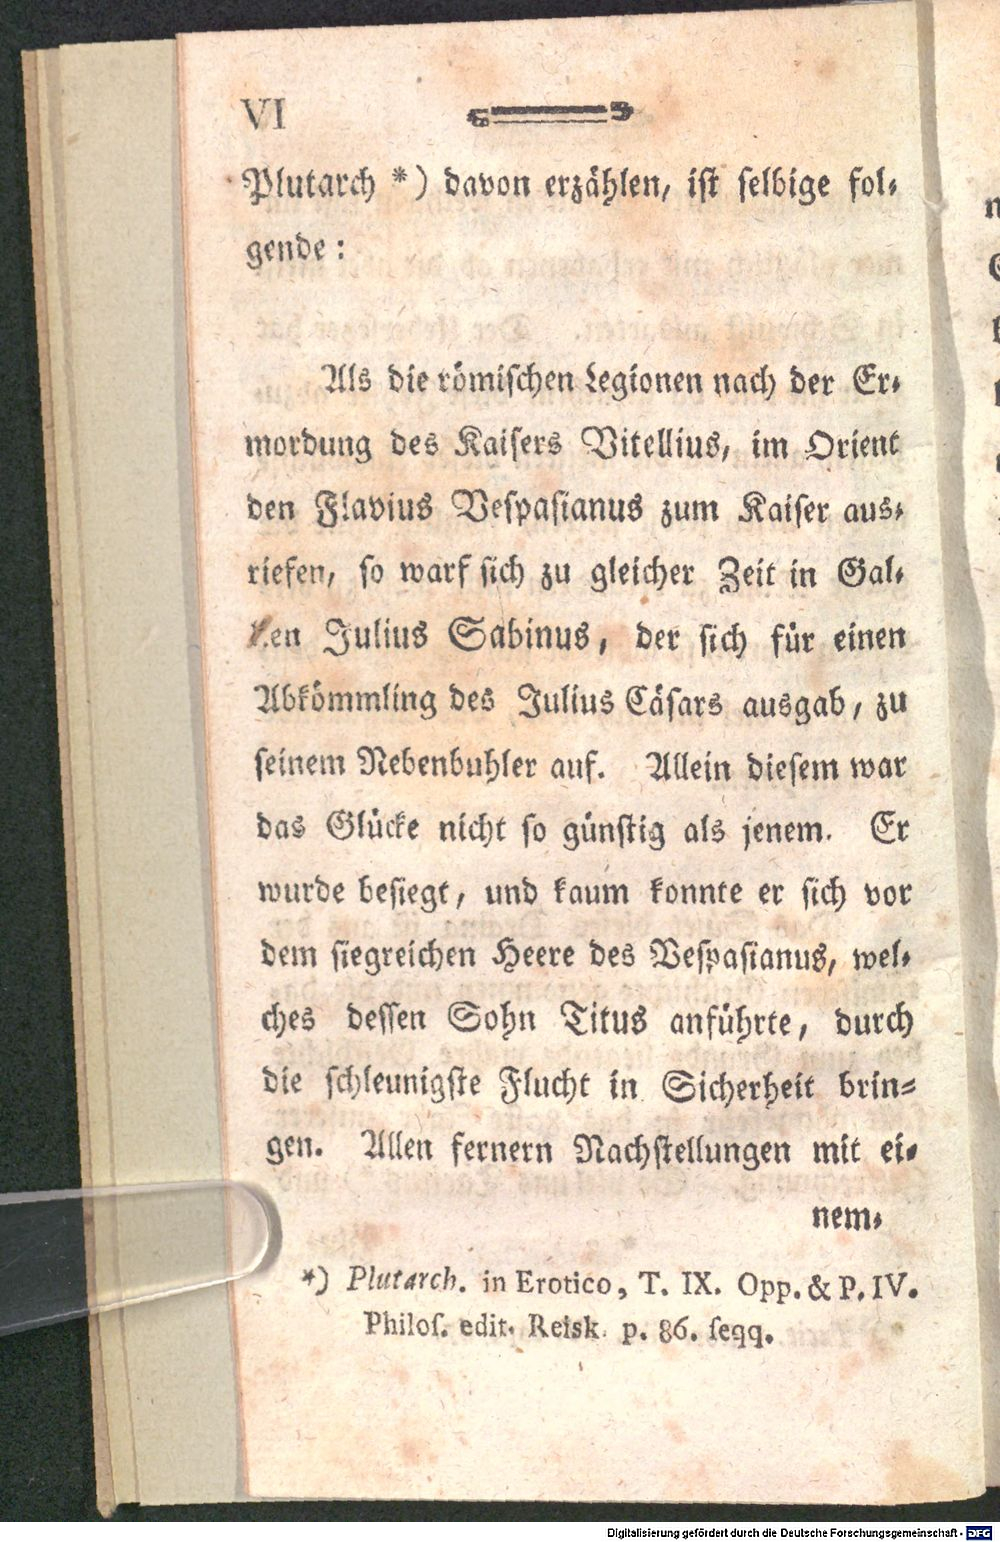 VI
Plutarch *) davon erzählen, ist selbige fol-
gende:
Als die römischen Legionen nach der Er-
mordung des Kaisers Vitellius, im Orient
den Flavius Vespasianus zum Kaiser aus-
riefen, so warf sich zu gleicher Zeit in Gal-
lien Julius Sabinus, der sich für einen
Abkömmling des Julius Cäsars ausgab, zu
seinem Nebenbuhler auf. Allein diesem war
das Glücke nicht so günstig als jenem. Er
wurde besiegt, und kaum konnte er sich vor
dem siegreichen Heere des Vespasianus, wel-
ches dessen Sohn Titus anführte, durch
die schleunigste Flucht in Sicherheit brin-
gen. Allen fernern Nachstellungen mit ei-
nem-
*) Plutarch. in Erotico, T. IX. Opp. & P. IV.
Philos. edit. Reisk. p. 86. seqq.
Digitalisierung gefördert durch die Deutsche Forschungsgemeinschaft - DFG